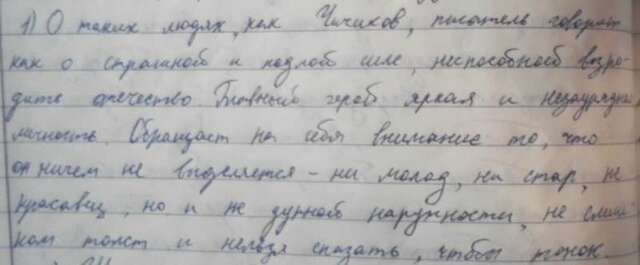 1) О таких людях, как Чичиков, писатель говорит
как о страшной и подлой силе, неспособной возро-
дить отечество. Главный герой яркая и незаурядная
личность. Обращает на себя внимание то, что
он ничем не выделяется - ни молод, ни стар, не
красавец, но и не дурной наружности, не слиш-
ком толст и нельзя сказать, чтобы тонок.